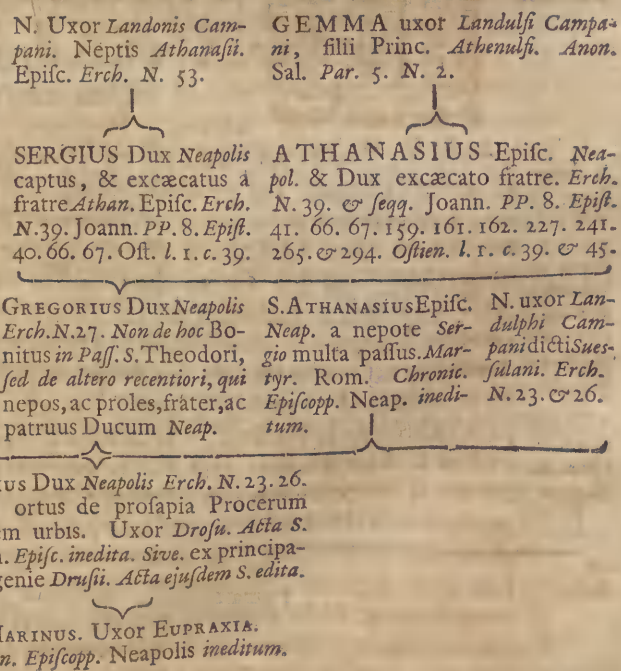 N. Uxor Landonis Cam-
pani. Neptis Athanaſii.
Epiſc. Erch. N. 53.
GEMMA uxor Landulfi Campa-
ni, filii Princ. Athenulfi. Anon.
Sal. Par. 5. N. 2.
SERGIUS Dux Neapolis
captus, & excæcatus à
fratre Athan. Epiſc. Erch.
N.39. Joann. PP. 8. Epiſt.
40. 66. 67. Oſt. l. 1. c. 39.
ATHANASIUS Epiſc. Nea-
pol. & Dux excæcato fratre. Erch.
N. 39. & ſeqq. Joann. PP. 8. Epiſt.
41. 66. 67. 159. 161. 162. 227. 241.
265. & 294. Oſtien. l. 1. c. 39. & 45.
GREGORIUS Dux Neapolis
Erch. N. 27. Non de hoc Bo-
nitus in Paſſ. S. Theodori,
ſed de altero recentiori, qui
nepos, ac proles, frater, ac
patruus Ducum Neap.
S. ATHANASIUS Epiſc.
Neap. a nepote Ser-
gio multa paſſus. Mar-
tyr. Rom. Chronic.
Epiſcopp. Neap. inedi-
tum.
N. uxor Lan-
dulphi Cam-
pani dicti Sueſ-
ſulani. Erch.
N. 23. & 26.
IUS Dux Neapolis Erch. N. 23. 26.
ortus de proſapia Procerum
em urbis. Uxor Droſu. Acta S.
. Epiſc. inedita. Sive. ex principa-
genie Druſii. Acta ejuſdem S. edita.
MARINUS. Uxor EUPRAXIA.
n. Epiſcopp. Neapolis ineditum.